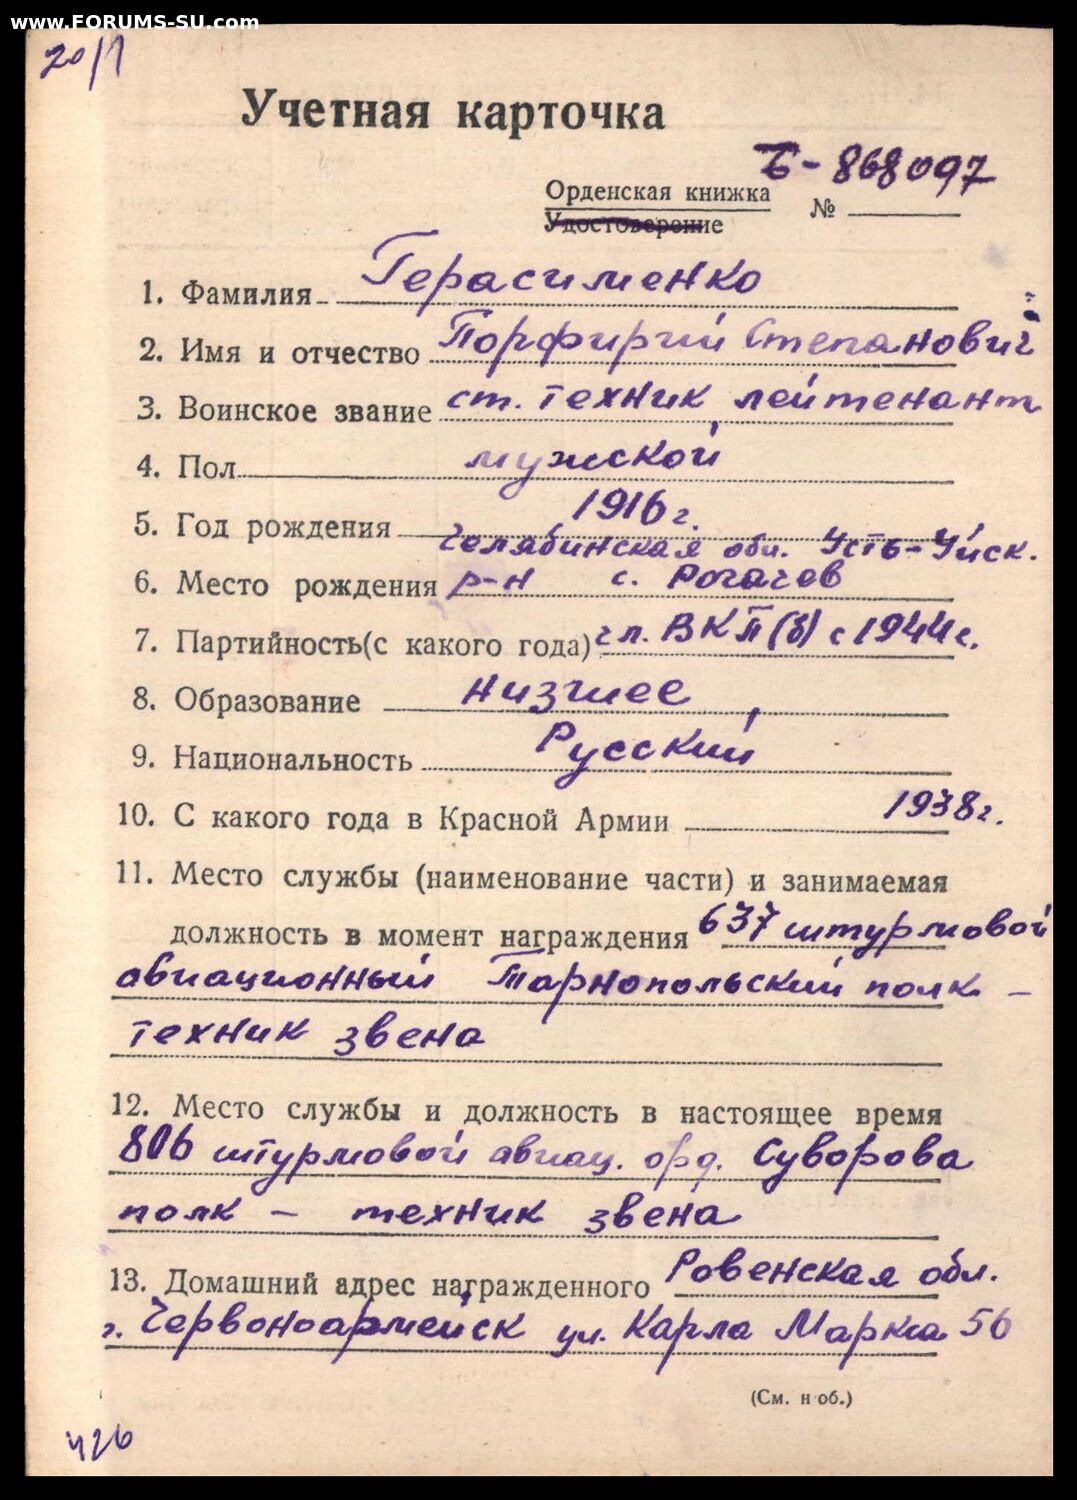 www.FORUMS-SU.com
20/1
Учетная карточка
Б-868097
Орденская книжка №
Удостоверение
1. Фамилия Герасименко
2. Имя и отчество Порфирий Степанович
3. Воинское звание ст. техник лейтенант
4. Пол мужской
5. Год рождения 1916 г.
Челябинская обл. Усть-Уйск.
6. Место рождения р-н с. Рогачев
7. Партийность (с какого года) чл. ВКП(б) с 1944 г.
8. Образование низшее
9. Национальность Русский
10. С какого года в Красной Армии 1938 г.
11. Место службы (наименование части) и занимаемая
должность в момент награждения 637 штурмовой
авиационный Тарнопольский полк -
техник звена
12. Место службы и должность в настоящее время
806 штурмовой авиац. орд. Суворова
полк - техник звена
13. Домашний адрес награжденного Ровенская обл.
г. Червоноармейск ул. Карла Маркса 56
(См. н об.)
426